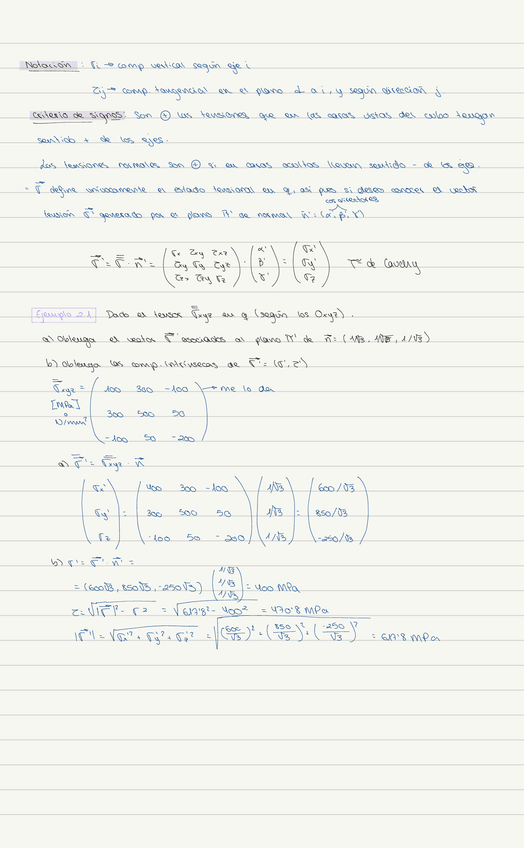 Notación: σi → comp vertical según eje i
τij → comp tangencial en el plano ⊥ a i, y según dirección j
Criterio de signos: Son ⊕ las tensiones que en las caras vistas del cubo tengan
sentido + de los ejes.
Las tensiones normales son ⊕ si en caras ocultas llevan sentido - de los ejes.
σ⃗ define unívocamente el estado tensional en q, así pues si deseo conocer el vector
cos directores
tensión σ⃗' generado por el plano π' de normal n⃗' = (α', β', γ')
σ⃗' = σ̿ · n⃗' = (σx τxy τxz; τxy σy τyz; τzx τzy σz) · (α'; β'; γ') = (σx'; σy'; σz) Tª de Cauchy
Ejemplo 2.1 Dado el tensor σ̿xyz en q (según los Oxyz).
a) Obtenga el vector σ⃗' asociados al plano π' de n⃗ = (1/√3, 1/√3, 1/√3)
b) Obtenga las comp. intrínsecas de σ⃗' = (σ', τ')
σ̿xyz = (100 300 -100 → me lo dan
[MPa]
ó
N/mm² 300 500 50
-100 50 -200)
a) σ⃗' = σ̿xyz · n⃗
(σx') = (400 300 -100) (1/√3) = (600/√3)
(σy') = (300 500 50) (1/√3) = (850/√3)
(σz) (-100 50 -200) (1/√3) (-250/√3)
b) σ' = σ⃗' · n⃗' =
= (600√3, 850√3, -250√3) (1/√3; 1/√3; 1/√3) = 400 MPa
τ = √|σ⃗'|² - σ² = √617'8² - 400² = 470'8 MPa
|σ⃗'| = √σx'² + σy'² + σz'² = √(600/√3)² + (850/√3)² + (-250/√3)² = 617'8 MPa